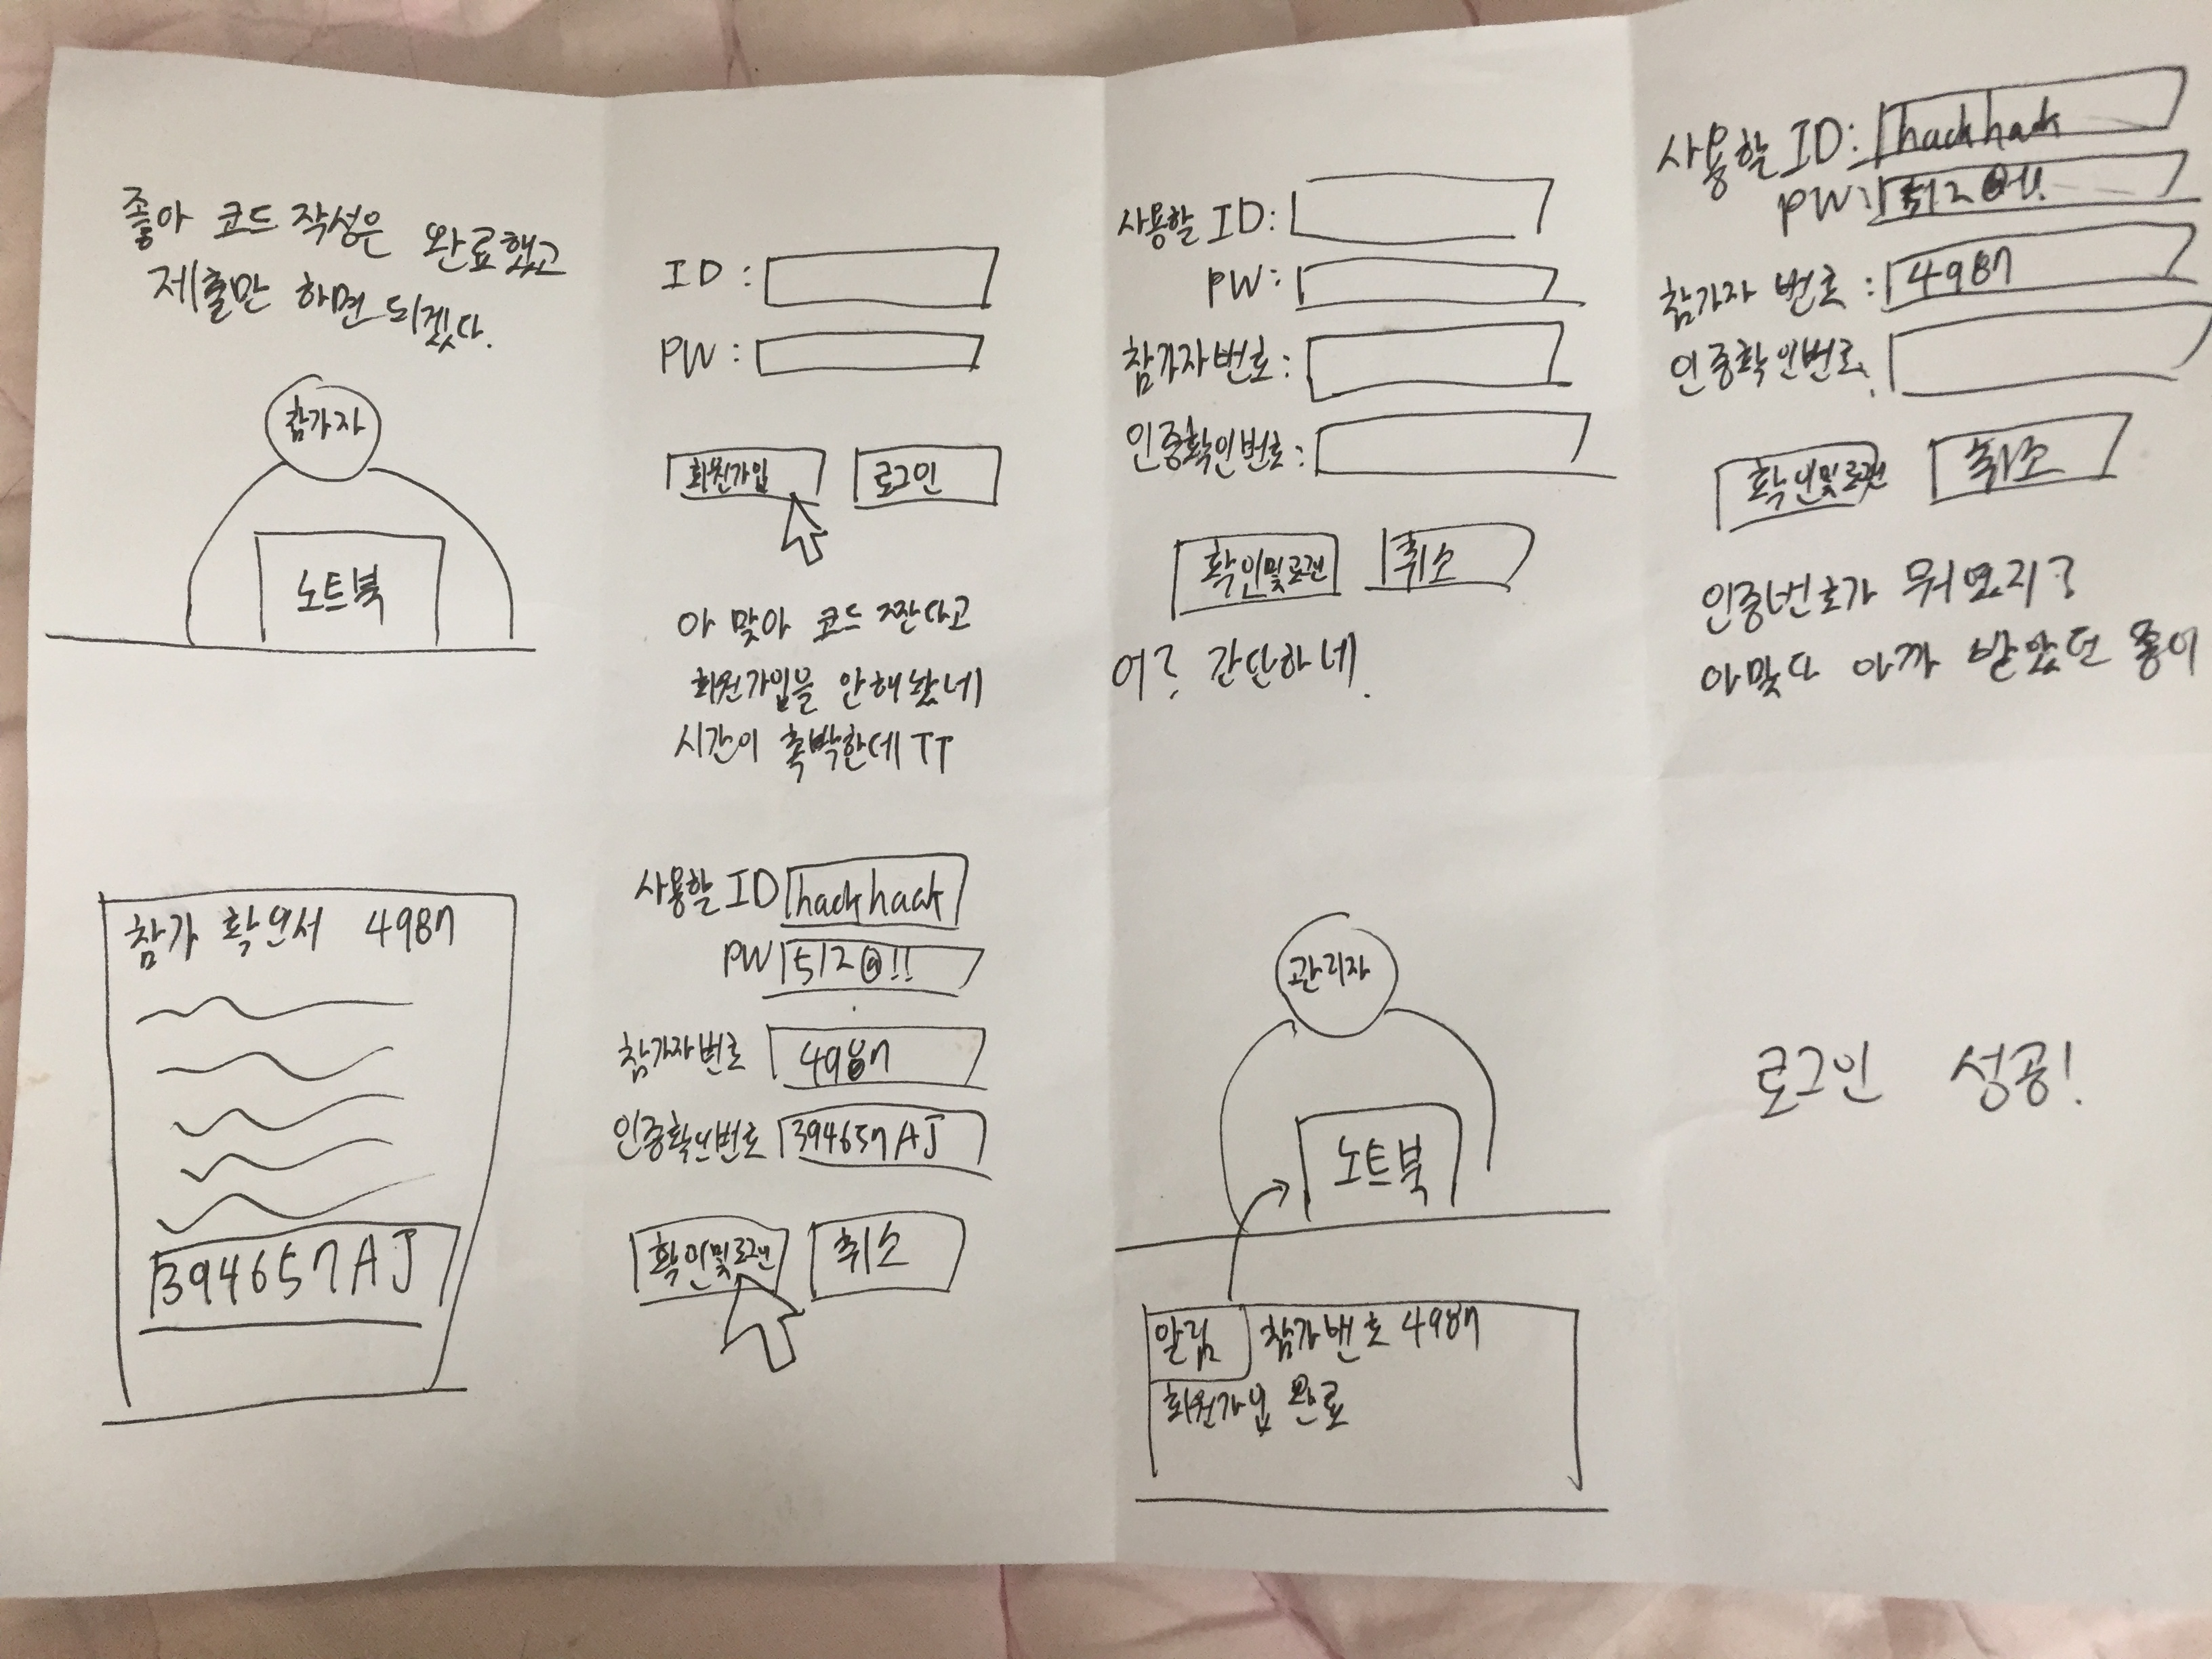 좋아 코드 작성은 완료했고
제출만 하면 되겠다.
참가자
노트북
ID :
PW :
회원가입
로그인
아 맞아 코드 짠다고
회원가입을 안해놨네
시간이 촉박한데 TT
사용할 ID:
PW:
참가자번호:
인증확인번호:
확인및로그인
취소
어? 간단하네.
사용할 ID: hackhack
PW: 512@!!
참가자 번호: 4987
인증확인번호:
확인및로그인
취소
인증번호가 뭐였지?
아맞다 아까 받았던 종이
참가 확인서 4987
394657AJ
사용할 ID hackhack
PW 512@!!
참가자번호 4987
인증확인번호 394657AJ
확인및로그인
취소
관리자
노트북
알림 참가번호 4987
회원가입 완료
로그인 성공!